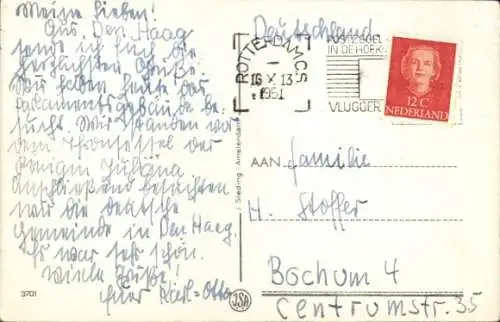 Meine Lieben!
Aus Den Haag
sende ich Euch die
herzlichsten Grüße.
Wir haben heute das
Palamentsgebäude be-
sucht. Wir standen vor
dem Thronsessel der
Königin Juliana
Anschließend besuchten
wir die deutsche
Gemeinde in Den Haag.
Es war sehr schön.
Viele Grüße!
Euer Karl-Otto
3701
JSA
/ Sleding - Amsterdam
Deutschland
ROTTERDAM C.S.
16 X 13
1961
POSTZEGEL
IN DE HOEK
VLUGGER
12 C
NEDERLAND
AAN Familie
H. Stoffer
Bochum 4
Centrumstr. 35